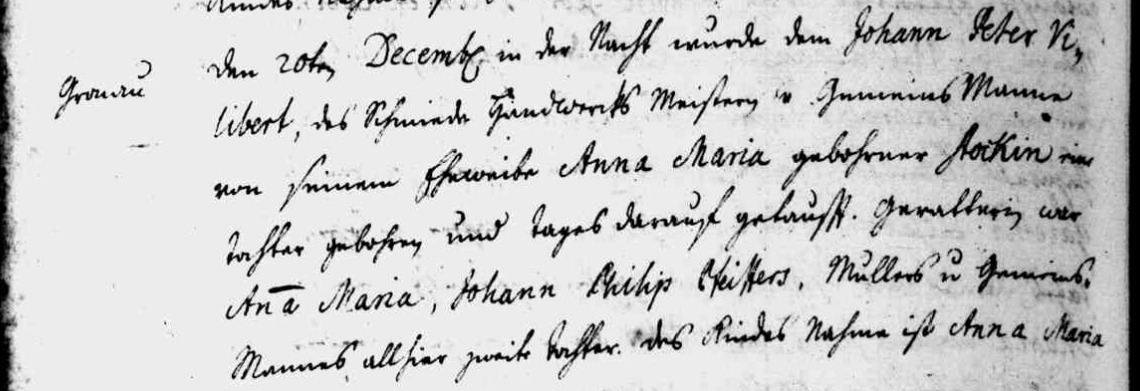 Kindes Nahme
Gronau
den 20ten Decembr. in der Nacht wurde dem Johann Peter Vi,
libert, des Schmiede Handwercks Meistern u. Gemeins Manne
von seinem Eheweibe Anna Maria gebohrner Stockin eine
tochter gebohren und tages darauf getaufft. Gevatterin war
Aña Maria, Johann Philip Pfeiffers, Müllers u Gemeins,
Mannes allhier zweite tochter. des Kindes Nahme ist Anna Maria